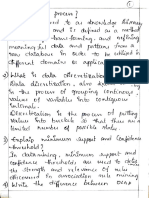 process?
to as knowledge discovery
and is defined as a method
and refining
meaningful data and patterns from a
raw database in order to be utilised in
different domains or applications.
2) What is data discretization?
Data discretization, also known as
is the process of grouping contiguous
values of variables into contiguous
intervals.
Discretization is the process of putting
values into buckets so that there are a
limited number of possible states.
3) Explain minimum support and confidence
threshold?
In data mining, minimum support and
confidence thresholds are used to
the strength and relevance of
association
efficient in association mining.
4) Write the difference between